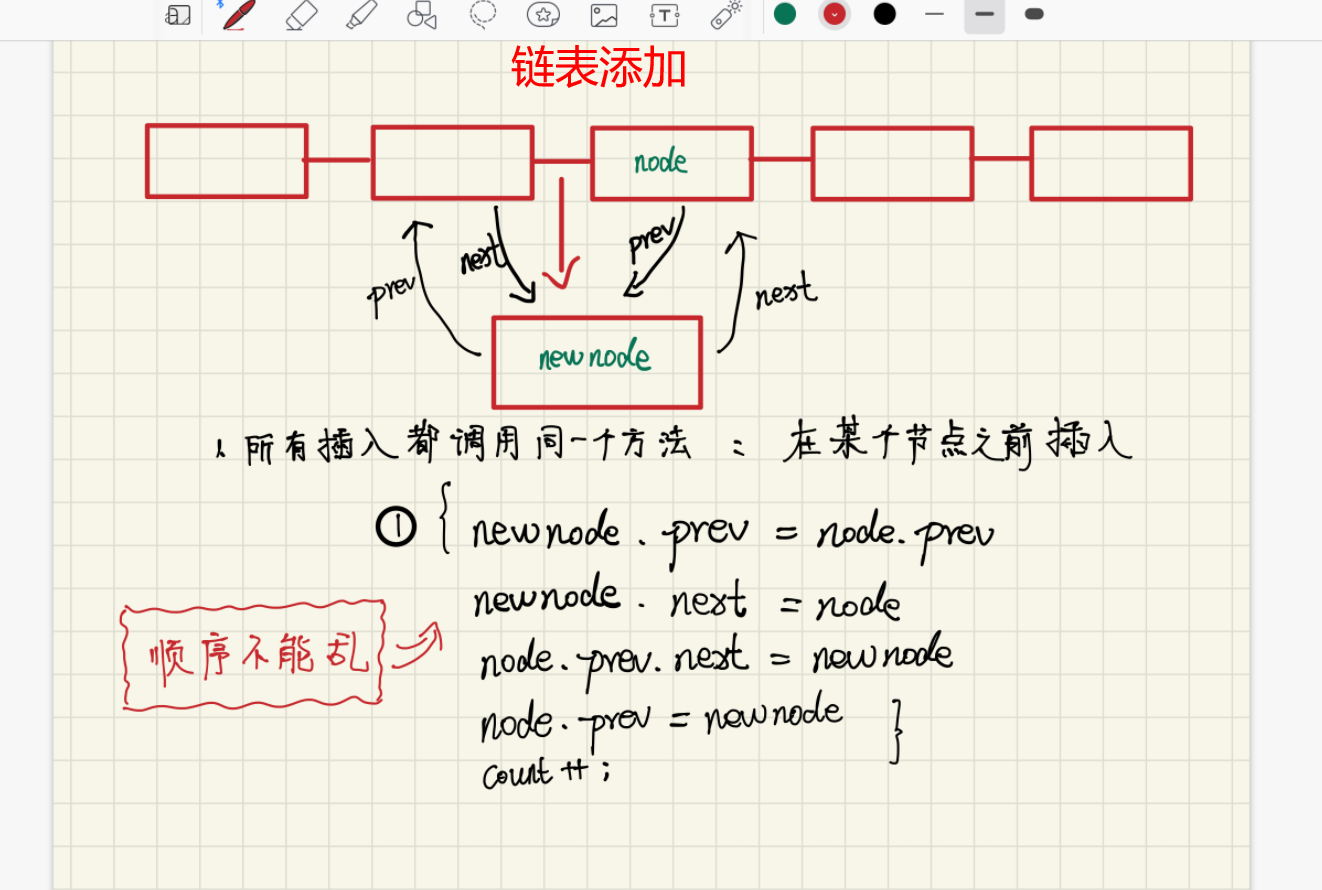 链表添加
node
next
prev
prev
next
newnode
1. 所有插入都调用同一个方法 : 在某个节点之前插入
① { newnode.prev = node.prev
newnode.next = node
顺序不能乱
node.prev.next = newnode
node.prev = newnode }
count++;